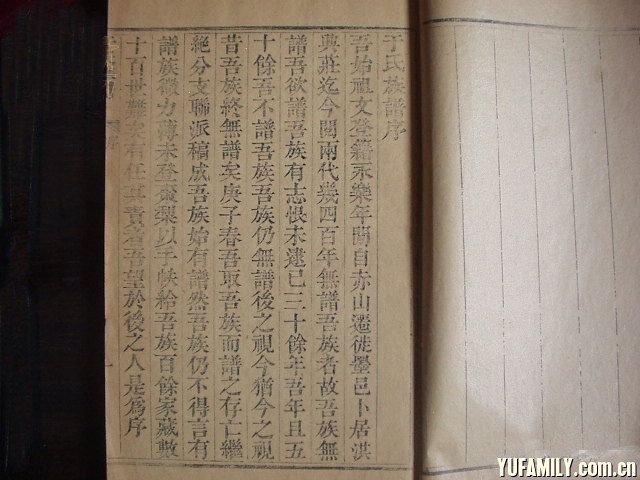 于氏族譜序
吾始祖文登籍永樂年間自赤山遷徙墨邑卜居洪
興莊迄今閱兩代幾四百年無譜吾族者故吾族無
譜吾欲譜吾族有志恨未逮已三十餘年吾年且五
十餘吾不譜吾族吾族仍無譜後之視今猶今之視
昔吾族終無譜矣庚子春吾取吾族而譜之存亡繼
絶分支聯派稿成吾族始有譜然吾族仍不得言有
譜族微力薄未登棗棃以手帙給吾族百餘家藏數
十百世難有任其責者吾望於後之人是為序
YUFAMILY.com.cn